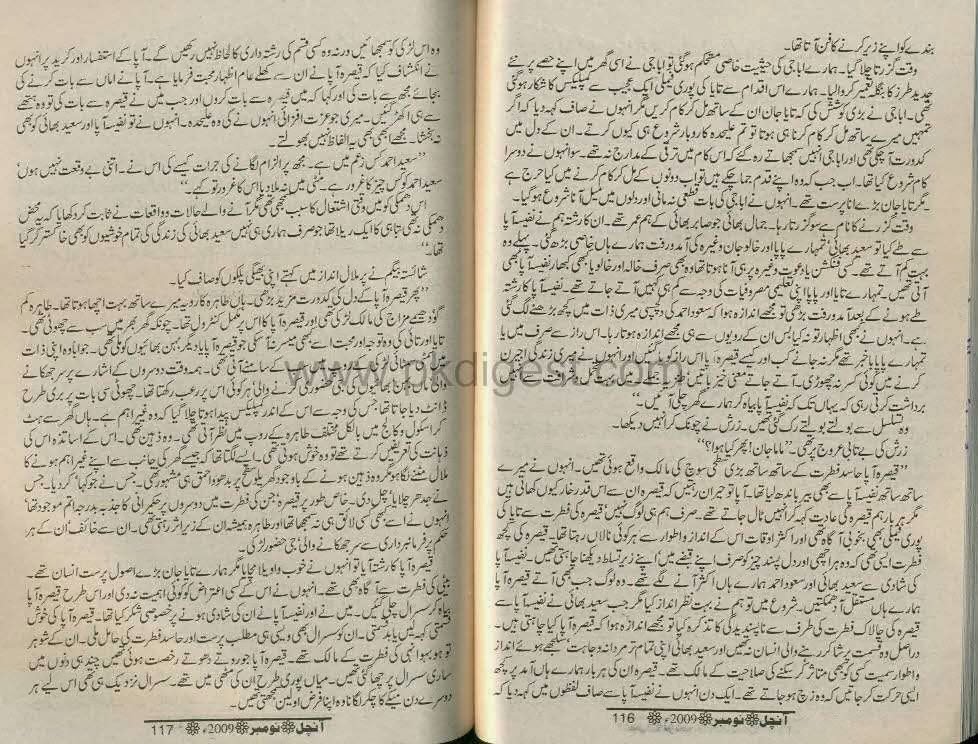 بندے کو اپنے زیر کرنے کا فن آتا تھا۔
وقت گزرتا چلا گیا۔ ہمارے ابا جی کی حیثیت خاصی مستحکم ہو گئی تو ابا جی نے اسی گھر میں اپنے حصے پر نئے
جدید طرز کا بنگلہ تعمیر کروا لیا۔ ہمارے اس اقدام سے تایا کی پوری فیملی ایک عجیب سے کمپلیکس کا شکار ہو گئی
تھی۔ ابا جی نے بڑی کوشش کی کہ تایا جان ان کے ساتھ مل کر کام کریں مگر انہوں نے صاف کہہ دیا کہ اگر
تمہیں میرے ساتھ مل کر کام کرنا ہی ہوتا تو تم علیحدہ کاروبار شروع ہی کیوں کرتے۔ ان کے دل میں
کدورت آ چکی تھی اور ابا جی انہیں سمجھاتے رہ گئے کہ اس کام میں ترقی کے مدارج نہ تھے۔ سو انہوں نے دوسرا
کام شروع کیا تھا۔ اب جب کہ وہ اپنے قدم جما چکے ہیں تو اب دونوں کے مل کر کام کرنے میں کیا حرج ہے
مگر تایا جان بڑے انا پرست تھے۔ انہوں نے ابا جی کی بات قطعی نہ مانی اور دلوں میں میل آنا شروع ہو گیا۔
وقت گزرنے کا نام ہے سو گزرتا رہا۔ جمال بھائی جو صابر بھائی کے ہم عمر تھے۔ ان کا رشتہ ہم نے نفیسہ آپا
سے طے کیا تو سعید بھائی' تمہارے پاپا اور خالو جان وغیرہ کی آمد و رفت ہمارے ہاں خاصی بڑھ گئی۔ پہلے وہ
بہت کم آتے تھے۔ کسی فنکشن یا دعوت وغیرہ پر ہی آنا ہوتا تھا وہ بھی صرف خالہ اور خالو یا کبھی کبھار نفیسہ آپا بھی
آتی تھیں۔ تمہارے تایا اور پاپا اپنی تعلیمی مصروفیات کی وجہ سے کم ہی کہیں آتے جاتے تھے۔ نفیسہ آپا کا رشتہ
طے ہونے کے بعد آمد و رفت بڑھی تو مجھے اندازہ ہوا کہ سعود احمد کی دلچسپی میری ذات میں کچھ بڑھنے لگ گئی
ہے۔ انہوں نے بھی اظہار تو نہ کیا بس ان کے رویوں سے ہی مجھے اندازہ ہوتا رہا۔ اس راز سے صرف میں یا
تمہارے پاپا باخبر تھے مگر نہ جانے کب اور کیسے قیصرہ آپا اس راز کو پا گئیں اور انہوں نے میری زندگی اجیرن
کرنے میں کوئی کسر نہ چھوڑی۔ آتے جاتے معنی خیز باتیں
برداشت کرتی رہی کہ یہاں تک کہ نفیسہ آپا بیاہ کر ہمارے گھر چلی آئیں۔"
وہ تسلسل سے بولتے بولتے رک گئی تھیں۔ زرش نے چونک کر انہیں دیکھا۔
زرش کی بے تابی عروج پر تھی۔ "ماما جان! پھر کیا ہوا؟"
"قیصرہ آپا حاسد فطرت کے ساتھ ساتھ بڑی سطحی سوچ کی مالک واقع ہوئی تھیں۔ انہوں نے میرے
ساتھ ساتھ نفیسہ آپا سے بھی بیر باندھ لیا تھا۔ آپا تو حیران رہتیں کہ قیصرہ ان سے اس قدر خار کیوں کھاتی ہیں
مگر ہر بار ہم قیصرہ کی عادت کہہ کر انہیں ٹال جاتے تھے۔ صرف ہم ہی لوگ نہیں' قیصرہ کی فطرت سے تایا کی
پوری فیملی بھی بخوبی آگاہ تھی اور اکثر اوقات اس کے انداز و اطوار سے ہر کوئی نالاں رہتا تھا۔ قیصرہ کی کچھ
فطرت ایسی تھی کہ وہ ہر اچھی اور دل پسند چیز کو صرف اپنے قبضے میں اپنے زیر تسلط دیکھنا چاہتی تھیں۔ نفیسہ آپا
کی شادی سے سعید بھائی اور سعود احمد ہمارے ہاں اکثر آنے لگے تھے۔ وہ لوگ جب بھی آتے قیصرہ آپا
ہمارے ہاں مستقل آ دھمکتیں۔ شروع میں تو ہم نے بہت نظر انداز کیا مگر جب سعید بھائی نے نفیسہ آپا سے
قیصرہ کی چالاک فطرت کی طرف سے ناپسندیدگی کا تذکرہ کیا تو مجھے اندازہ ہوا کہ قیصرہ آپا کیا چاہتی ہیں۔
دراصل وہ قسمت پر شاکر رہنے والی انسان نہیں تھیں اور سعید بھائی اپنی تمام تر مردانہ وجاہت سلجھے ہوئے انداز
و اطوار سمیت کسی کو بھی متاثر کر سکنے کی صلاحیت کے مالک تھے۔ قیصرہ ان کی ہر بار ہمارے ہاں آمد پر کچھ
ایسی حرکت کر جاتیں کہ وہ زچ ہو جاتے تھے۔ ایک دن انہوں نے نفیسہ آپا سے صاف لفظوں میں کہہ دیا کہ
آنچل نومبر 2009ء 116
وہ اس لڑکی کو سمجھائیں ورنہ وہ کسی قسم کی رشتہ داری کا لحاظ نہیں رکھیں گے۔ آپا کے استفسار اور کرید پر انہوں
نے انکشاف کیا کہ قیصرہ آپا نے ان سے کھلے عام اظہار محبت فرمایا ہے۔ آپا نے اماں سے بات کرنے کی
بجائے مجھ سے بات کی اور کہا کہ میں قیصرہ سے بات کروں اور جب میں نے قیصرہ سے بات کی تو وہ ہتھے
سے ہی اکھڑ گئیں۔ میری جو عزت افزائی انہوں نے کی وہ علیحدہ۔ انہوں نے تو نفیسہ آپا اور سعید بھائی کو بھی
نہ بخشا۔ مجھے ابھی بھی یہ الفاظ نہیں بھولتے۔
"سعید احمد کس زعم میں ہے۔ مجھ پر الزام لگانے کی جرات کیسے کی اس نے۔ اتنی بے وقعت نہیں ہوں'
سعید احمد کو کس چیز کا غرور ہے۔ مٹی میں نہ ملا دیا اس کا غرور تو کہیے۔"
اس دھمکی کو میں وقتی اشتعال کا سبب سمجھی تھی مگر آنے والے حالات و واقعات نے ثابت کر دکھایا کہ یہ محض
دھمکی نہ تھی تباہی کا ایک ریلا تھا جو صرف ہماری ہی نہیں سعید بھائی کی زندگی کی تمام خوشیوں کو بھی خاکستر کر گیا
تھا۔"
شائستہ بیگم نے پر ملال انداز میں کہتے اپنی بھیگی پلکوں کو صاف کیا۔
"پھر قیصرہ آپا کے دل کی کدورت مزید بڑھی۔ ہاں طاہرہ کا رویہ میرے ساتھ بہت اچھا ہوتا تھا۔ طاہرہ کم
گو' دھیمے مزاج کی مالک لڑکی تھی اور قیصرہ آپا کا اس پر مکمل کنٹرول تھا۔ چونکہ گھر بھر میں سب سے چھوٹی تھی۔
تایا اور تائی کی وہ توجہ اور محبت اسے بھی میسر نہ آ سکی جو قیصرہ آپا یا دیگر بہن بھائیوں کو ملی تھی۔ جواباً وہ اپنی ذات
میں سب کے سامنے آئی تھی۔ ہمہ وقت دوسروں کے اشارے پر سر جھکانے
جی حضوری کرنے والی' ہر کوئی اس پر رعب رکھتا تھا۔ چھوٹی سی بات پر بری طرح
ڈانٹ دیا جاتا تھا جس کی وجہ سے اس کے اندر کمپلیکس پیدا ہوتا چلا گیا کہ وہ غیر اہم ہے۔ ہاں گھر سے ہٹ
کر اسکول و کالج میں بالکل مختلف طاہرہ کے روپ میں نظر آتی تھی۔ وہ ذہین تھی۔ اس کے اساتذہ اس کی
ذہانت کی تعریفیں کرتے تھے تو وہ خوش ہوتی تھی۔ ایسے لگتا تھا کہ جیسے گھر کی جانب سے اپنے غیر اہم ہونے کا
ملال مٹنے لگا ہو مگر وہ ذہین ہونے کے باوجود گھریلو سطح پر بدھو و احمق ہی مشہور تھی۔ جس نے جو کہا' کر دیا۔ جس
نے جدھر چلایا' چل دی۔ خاص طور پر قیصرہ' جن کی فطرت میں دوسروں پر حکمرانی کا جذبہ بدرجہ اتم موجود تھا'
انہوں نے اسے کبھی کسی لائق ہی نہ سمجھا تھا اور طاہرہ ہمیشہ ان کے زیر اثر رہتی تھی۔ ان سے خائف' ان کے ہر
حکم پر فرمانبرداری سے سر جھکانے والی' جی حضور لڑکی۔
قیصرہ آپا کا رشتہ آیا تو انہوں نے خوب واویلا مچایا مگر ہمارے تایا جان بڑے اصول پرست انسان تھے۔
بیٹی کی فطرت سے آگاہ بھی تھے۔ انہوں نے اس کے کسی اعتراض کو کوئی اہمیت نہ دی اور اس طرح قیصرہ آپا
بیاہ کر سسرال چلی گئیں۔ میں نے اور نفیسہ آپا نے ان کی شادی ہونے پر خصوصی شکر کیا تھا۔ قیصرہ آپا کی خوش
قسمتی کہہ لیں یا بد قسمتی۔ ان کو سسرال بھی ویسی ہی مطلب پرست اور حاسد فطرت کی حامل ملی۔ ان کے شوہر
تو ہو بہو انہی کی فطرت کے مالک تھے۔ قیصرہ آپا جو روتے دھوتے رخصت ہوئی تھیں چند ہی دنوں میں
ساری سسرال پر حاوی تھیں۔ میاں پوری طرح ان کی مٹھی میں تھے۔ سسرال نزدیک ہی تھی اس لیے ہر
دوسرے دن میکے کا چکر لگانا وہ اپنا فرض اولین سمجھتی تھیں۔
آنچل نومبر 2009ء 117
www.pkdigest.com